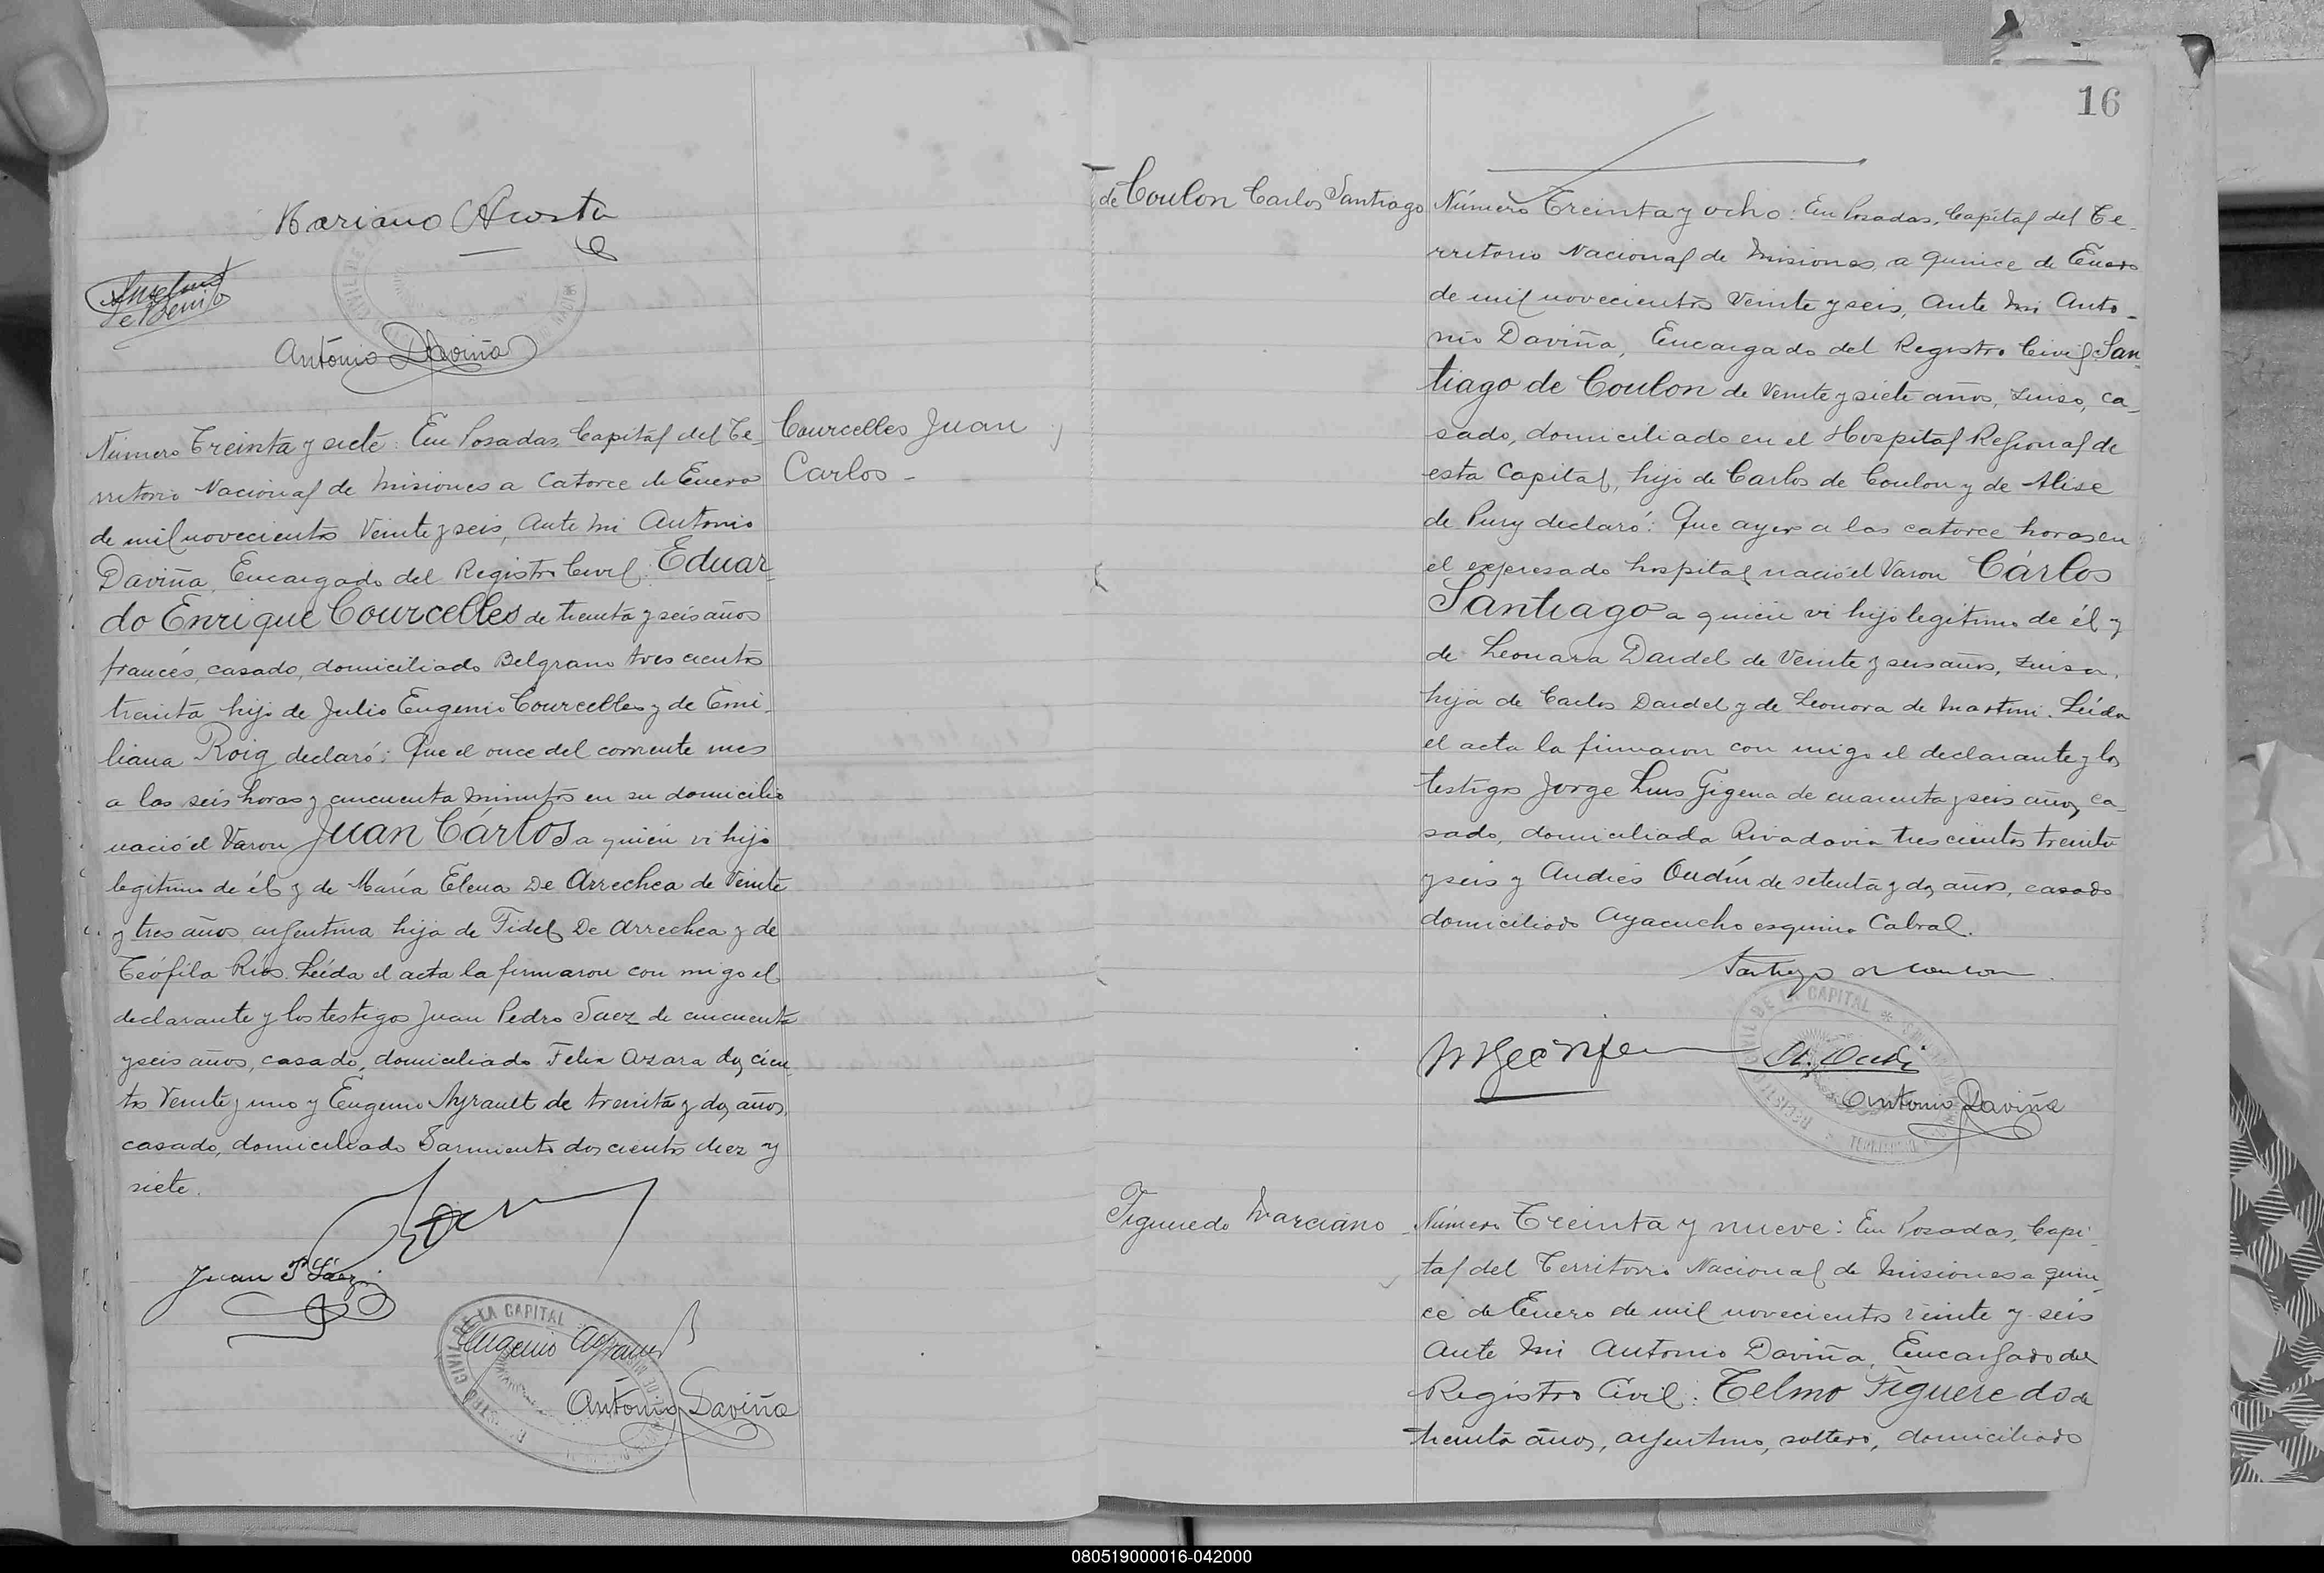 Mariano Acosta
Anselmo
de Benito
Antonio Daviña
Número Treinta y siete: En Posadas, Capital del Te-
rritorio Nacional de Misiones a Catorce de Enero
de mil novecientos Veinte y seis, Ante mi Antonio
Daviña, Encargado del Registro Civil: Eduar
do Enrique Courcelles de treinta y seis años
francés, casado, domiciliado Belgrano tres cientos
treinta hijo de Julio Eugenio Courcelles y de Emi-
liana Roig declaró: Que el once del corriente mes
a las seis horas y cincuenta minutos en su domicilio
nació el Varon Juan Cárlos a quien vi hijo
legítimo de él y de María Elena De Arrechea de Veinte
y tres años argentina hija de Fidel De Arrechea y de
Teófila Ríos. Leída el acta la firmaron con migo el
declarante y los testigos Juan Pedro Saez de cincuenta
y seis años, casado, domiciliado Felix Azara dos cien-
tos Veinte y uno y Eugenio Ayrault de treinta y dos años,
casado, domiciliado Sarmiento dos cientos diez y
siete.
Juan P. Sáez
Eugenio Ayrault
Antonio Daviña
REGISTRO CIVIL DE LA CAPITAL
Courcelles Juan
Carlos -
16
de Coulon Carlos Santiago
Número Treinta y ocho: En Posadas, Capital del Te-
rritorio Nacional de Misiones, a quince de Enero
de mil novecientos Veinte y seis, Ante mi Anto-
nio Daviña, Encargado del Registro Civil San
tiago de Coulon de Veinte y siete años, Suiso, ca-
sado, domiciliado en el Hospital Regional de
esta Capital, hijo de Carlos de Coulon y de Alise
de Pury declaró: Que ayer a las catorce horas en
el expresado hospital nació el Varon Cárlos
Santiago a quien vi hijo legítimo de él y
de Leonara Dardel de Veinte y seis años, Suisa,
hija de Carlos Dardel y de Leonora de Martini. Leída
el acta la firmaron con migo el declarante y los
testigos Jorge Luis Gigena de cuarenta y seis años, ca-
sado, domiciliada Rivadavia tres cientos treinta
y seis y Andrés Oudín de setenta y dos años, casado
domiciliado Ayacucho esquina Cabral.
Santiago de Coulon
A. Oudin
Antonio Daviña
REGISTRO CIVIL DE LA CAPITAL
Figueredo Marciano
Número Treinta y nueve: En Posadas, Capi-
tal del Territorio Nacional de Misiones a quin-
ce de Enero de mil novecientos veinte y seis
Ante mi Antonio Daviña, Encargado del
Registro Civil: Telmo Figueredo de
treinta años, argentino, soltero, domiciliado
080519000016-042000